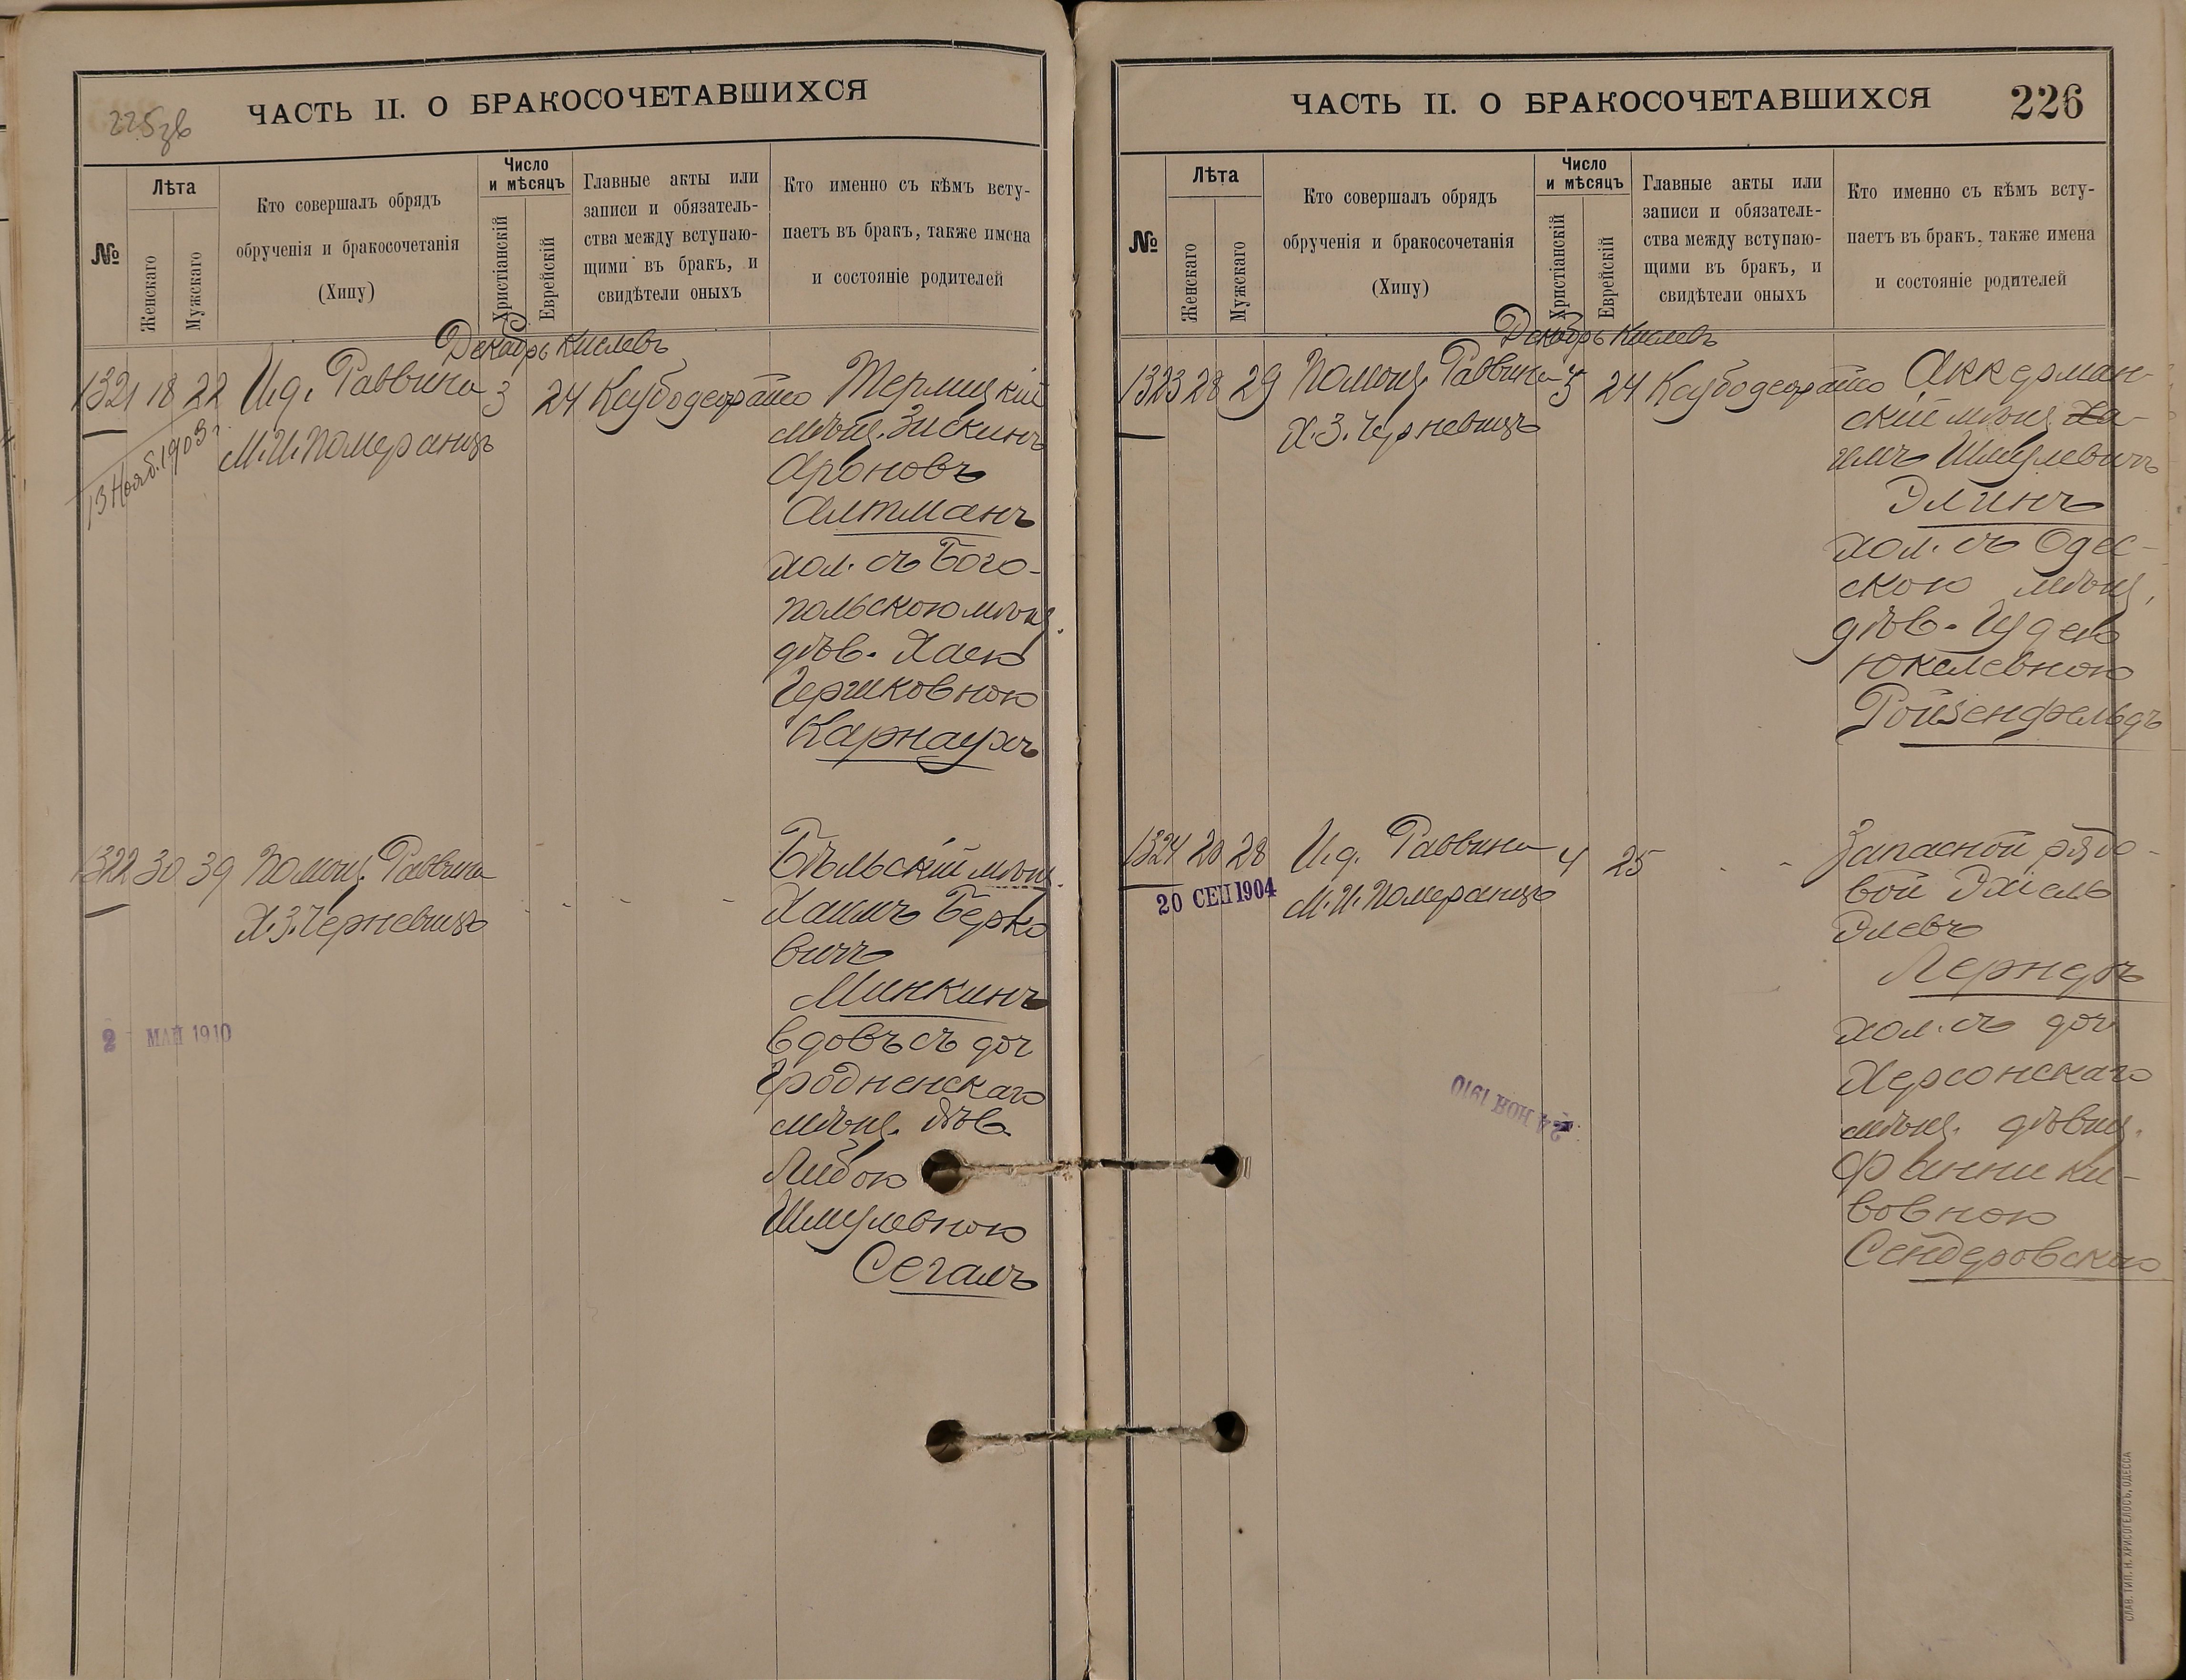 225зв
ЧАСТЬ II. О БРАКОСОЧЕТАВШИХСЯ
№
Лѣта
Женскаго
Мужскаго
Кто совершалъ обрядъ
обрученія и бракосочетанія
(Хипу)
Число
и мѣсяцъ
Христіанскій
Еврейскій
Главные акты или
записи и обязатель-
ства между вступаю-
щими въ бракъ, и
свидѣтели оныхъ
Кто именно съ кѣмъ всту-
паетъ въ бракъ, также имена
и состояніе родителей
Декабрь Кислевъ
1321 18 22 И.д. Раввина 3 24
М.И. Померанцъ
13 Нояб. 1903 г.
мѣщ. Зискинъ
Ароновъ
Алтманъ
хол. съ Бого-
польскою мѣщ.
дѣв. Хаею
Гершковною
Карнаухъ
1322 30 39 Помощ. Раввина - - - -
Х.З. Черневицъ
2 МАЙ 1910
Бѣльскій мѣщ.
Хаимъ Берко
вичъ
Минкинъ
вдовъ съ доч
Гродненскаго
мѣщ. дѣв.
Либою
Шмулевною
Сегалъ
ЧАСТЬ II. О БРАКОСОЧЕТАВШИХСЯ
226
№
Лѣта
Женскаго
Мужскаго
Кто совершалъ обрядъ
обрученія и бракосочетанія
(Хипу)
Число
и мѣсяцъ
Христіанскій
Еврейскій
Главные акты или
записи и обязатель-
ства между вступаю-
щими въ бракъ, и
свидѣтели оныхъ
Кто именно съ кѣмъ всту-
паетъ въ бракъ, также имена
и состояніе родителей
Декабрь Кислевъ
1323 28 29 Помощ. Раввина 24
Х.З. Черневицъ
Аккерман-
скій мѣщ. Ха-
имъ Шмулевичъ
Элинъ
хол. съ Одес-
скою мѣщ.
дѣв. Гудею
Юкелевною
Ройзенфельдъ
1324 20 28 И.д. Раввина 4 25 - -
М.И. Померанцъ
20 СЕП 1904
24 НОЯ 1910
Запасной рядо-
вой Эхіель
Элевъ
Лернеръ
хол. съ доч
Херсонскаго
мѣщ. дѣвиц.
Фанни Ки-
вовною
Сендеровскою
СЛАВ. ТИП. Н. ХРИСОГЕЛОСЪ, ОДЕССА